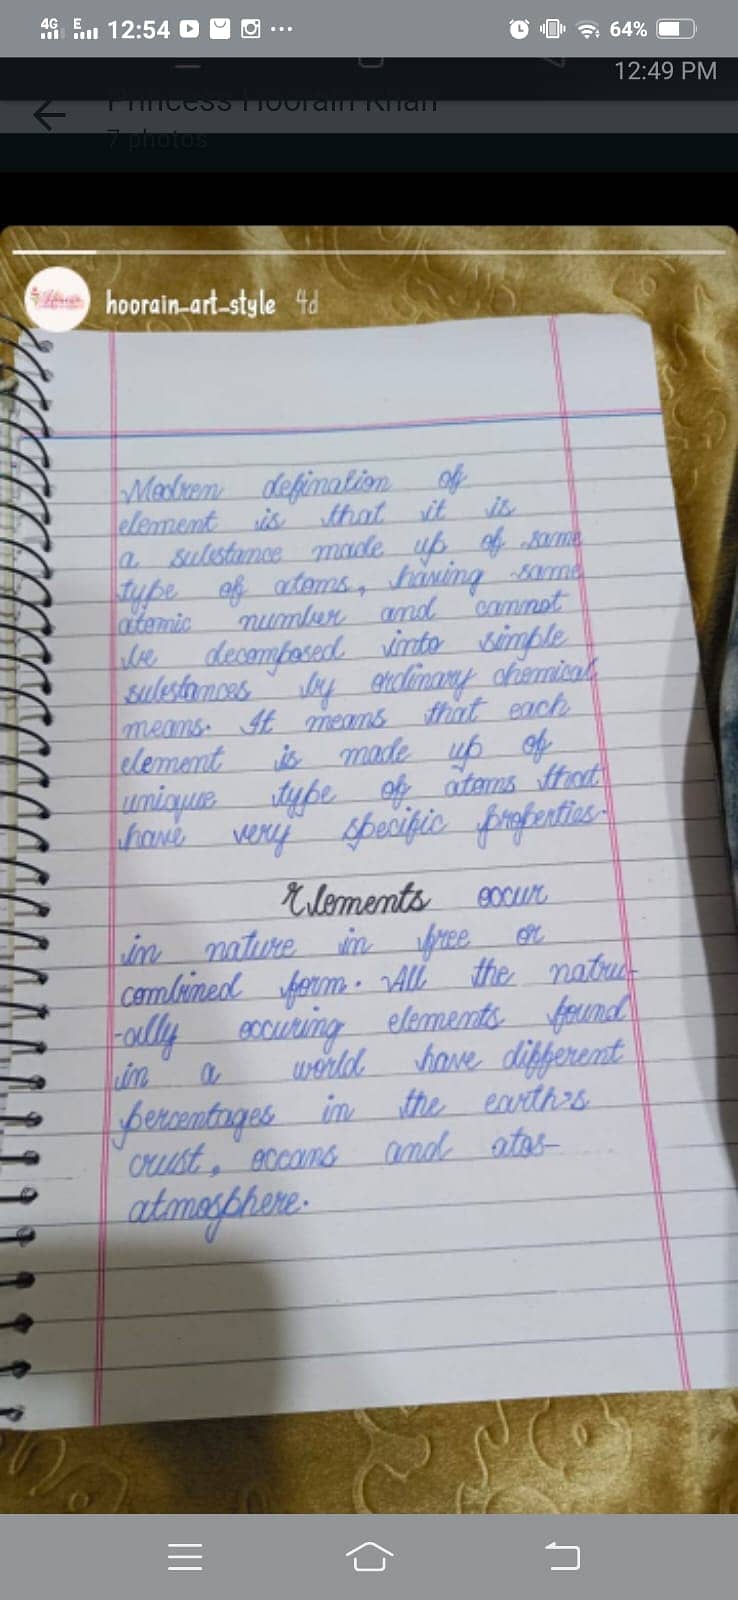 4G E 12:54 ... 64%
12:49 PM
Princess Hoorain Khan
7 photos
hoorain_art_style 4d
Modren defination of
element is that it is
a substance made up of same
type of atoms, having same
atomic number and cannot
be decomposed into simple
substances by ordinary chemical
means. It means that each
element is made up of
unique type of atoms that
have very specific properties.
Elements occur
in nature in free or
combined form. All the natru-
-ally occuring elements found
in a world have different
percentages in the earth's
crust, occans and atos-
atmosphere.